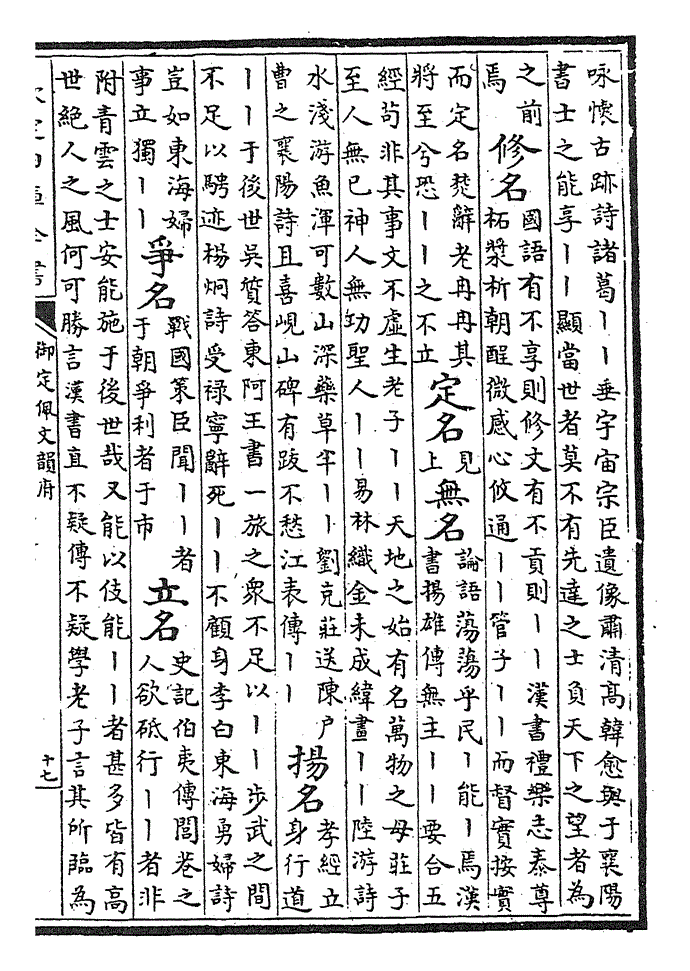 咏懷古跡詩諸葛丨丨垂宇宙宗臣遺像肅清髙韓愈與于襄陽
書士之能享丨丨顯當世者莫不有先達之士負天下之望者為
之前
焉
修名
國語有不享則修文有不貢則丨丨漢書禮樂志泰尊
柘漿析朝酲微感心攸通丨丨管子丨丨而督實按實
而定名楚辭老冉冉其
將至兮恐丨丨之不立
定名
見
上
無名
論語蕩蕩乎民丨能丨焉漢
書揚雄傳無主丨丨要合五
經苟非其事文不虛生老子丨丨天地之始有名萬物之母莊子
至人無已神人無功聖人丨丨易林織金未成緯畫丨丨陸游詩
水淺游魚渾可數山深藥草半丨丨劉克莊送陳户
曹之襄陽詩且喜峴山碑有跋不愁江表傳丨丨
揚名
孝經立
身行道
丨丨于後世吳質答東阿王書一旅之衆不足以丨丨步武之間
不足以騁迹楊炯詩受禄寧辭死丨丨不顧身李白東海勇婦詩
豈如東海婦
事立獨丨丨
爭名
戰國策臣聞丨丨者
于朝爭利者于市
立名
史記伯夷傳閭巷之
人欲砥行丨丨者非
附青雲之士安能施于後世哉又能以伎能丨丨者甚多皆有高
世絶人之風何可勝言漢書直不疑傳不疑學老子言其所臨為
欽定四庫全書
御定佩文韻府
十七